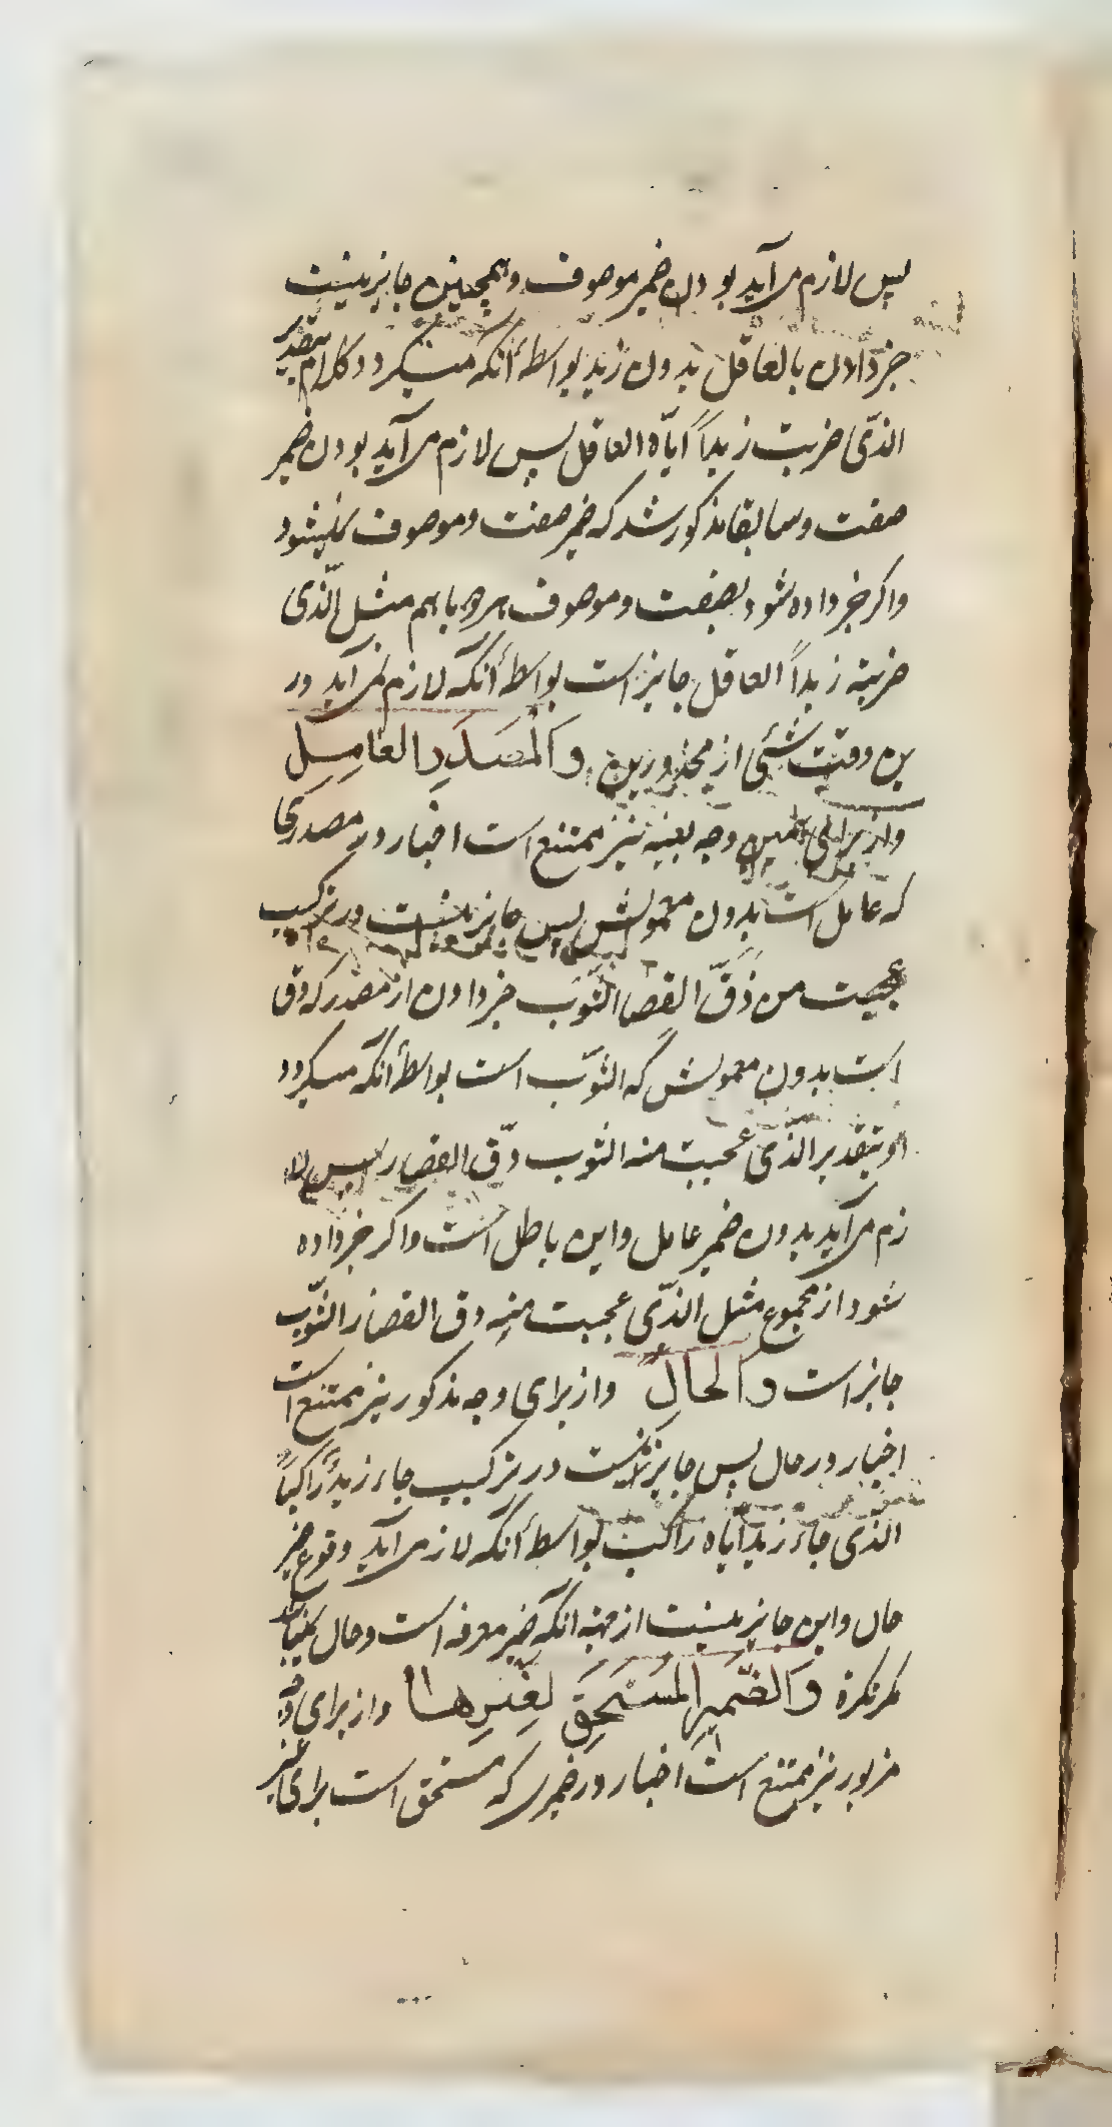 پس لازم می‌آید بودن ضمیر موصوف و همچنین جایز نیست
خبر دادن بالعاقل بدون زید بواسطهٔ آنکه میگردد کلام بتقدیر
الذّی ضربت زیداً ایّاه العاقل پس لازم می‌آید بودن ضمیر
صفت و سابقا مذکور شد که ضمیر صفت و موصوف نمیشود
و اکر خبر داده شود بصفت و موصوف هر دو با هم مثل الّذی
ضربته زیداً العاقل جایز است بواسطهٔ آنکه لازم نمی‌آید در
ین وقت شئی از محذورین وَالْمَصدَرِ العامِلِ
و از برای همین وجه بعینه نیز ممتنع است اخبار در مصدری
که عامل است بدون معمولش پس جایز نیست در ترکیب
عجبت من دَقّ القصار الثّوب خبر دادن از مصدر که دق
است بدون معمولش که الثّوب است بواسطهٔ آنکه میکردد
او بتقدیر الّذی عجبت منه الثوب دقّ القصار پس لا
زم می‌آید بدون ضمیر عامل و این باطل است و اکر خبر داده
شود از مجموع مثل الذّی عجبت منه دق القصار الثّوب
جایز است وَ الحالِ و از برای وجه مذکور نیز ممتنع است
اخبار در حال پس جایز نیست در ترکیب جاء زیدٌ راکباً
الذّی جاء زید ایّاه راکب بواسطهٔ آنکه لازم می‌آید وقوع ضمیر
حال و این جایز نیست از جهة انکه ضمیر معرفه است و حال نمیباشد
مکر نکرة وَالضّمیرِ المُستَحِقِّ لِغَیرِها و از برای وجه
مزبور نیز ممتنع است اخبار در ضمیری که مستحق است برای غیر